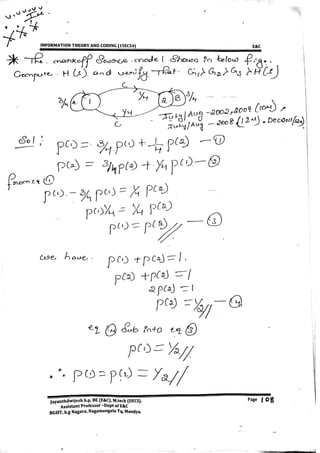 V.V V V V
INFORMATION THEORY AND CODING (15EC54) E&C
* The markoff Source model Shown in below fig.
Compute. H(s) and verify That. G₁ > G₂ > G₃ > H(s)
C
3/4 A 1 1/4 2 B 3/4
1/4
C
July/Aug - 2002, 2009 (10M)
July/Aug - 2008 (12M)
Sol: p(1) = 3/4 p(1) + 1/4 p(2) — ①
p(2) = 3/4 p(2) + 1/4 p(1) — ②
from eq ①
p(1) - 3/4 p(1) = 1/4 p(2)
p(1) 1/4 = 1/4 p(2)
p(1) = p(2) // — ③
we have. p(1) + p(2) = 1.
p(2) + p(2) = 1
2 p(2) = 1
p(2) = 1/2 // — ④
eq ④ Sub into eq ③
p(1) = 1/2 //
∴ p(1) = p(2) = 1/2 //
Jayanthdwijesh h.p, BE (E&C), M.tech (DECS).
Assistant Professor -Dept of E&C
BGSIT, b.g Nagara, Nagamangala Tq, Mandya.
Page 108